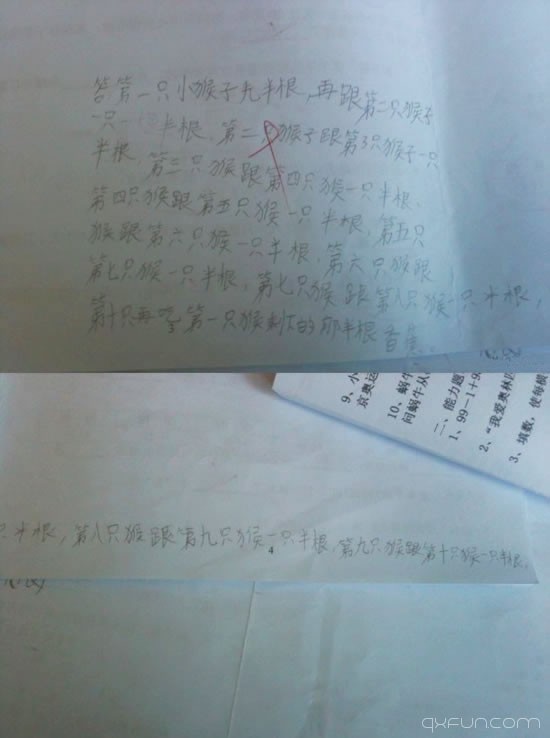 答第一只小猴子九半根,再跟第二只猴子
一只一 半根,第二只猴子跟第3只猴子一只
半根,第三只猴跟第四只猴一只半根,
第四只猴跟第五只猴一只半根,第五只
猴跟第六只猴一只半根,第六只猴跟
第七只猴一只半根,第七只猴跟第八只猴一只半根,
第十只再吃第一只猴剩下的那半根香蕉。
9、小
京奥运
10、蜗牛
问蜗牛从
二、能力题
1、99-1+9
2、“我爱奥林匹
3、填数,使每横
只半根,第八只猴跟第九只猴一只半根,第九只猴跟第十只猴一只半根,
4
qxfun.com